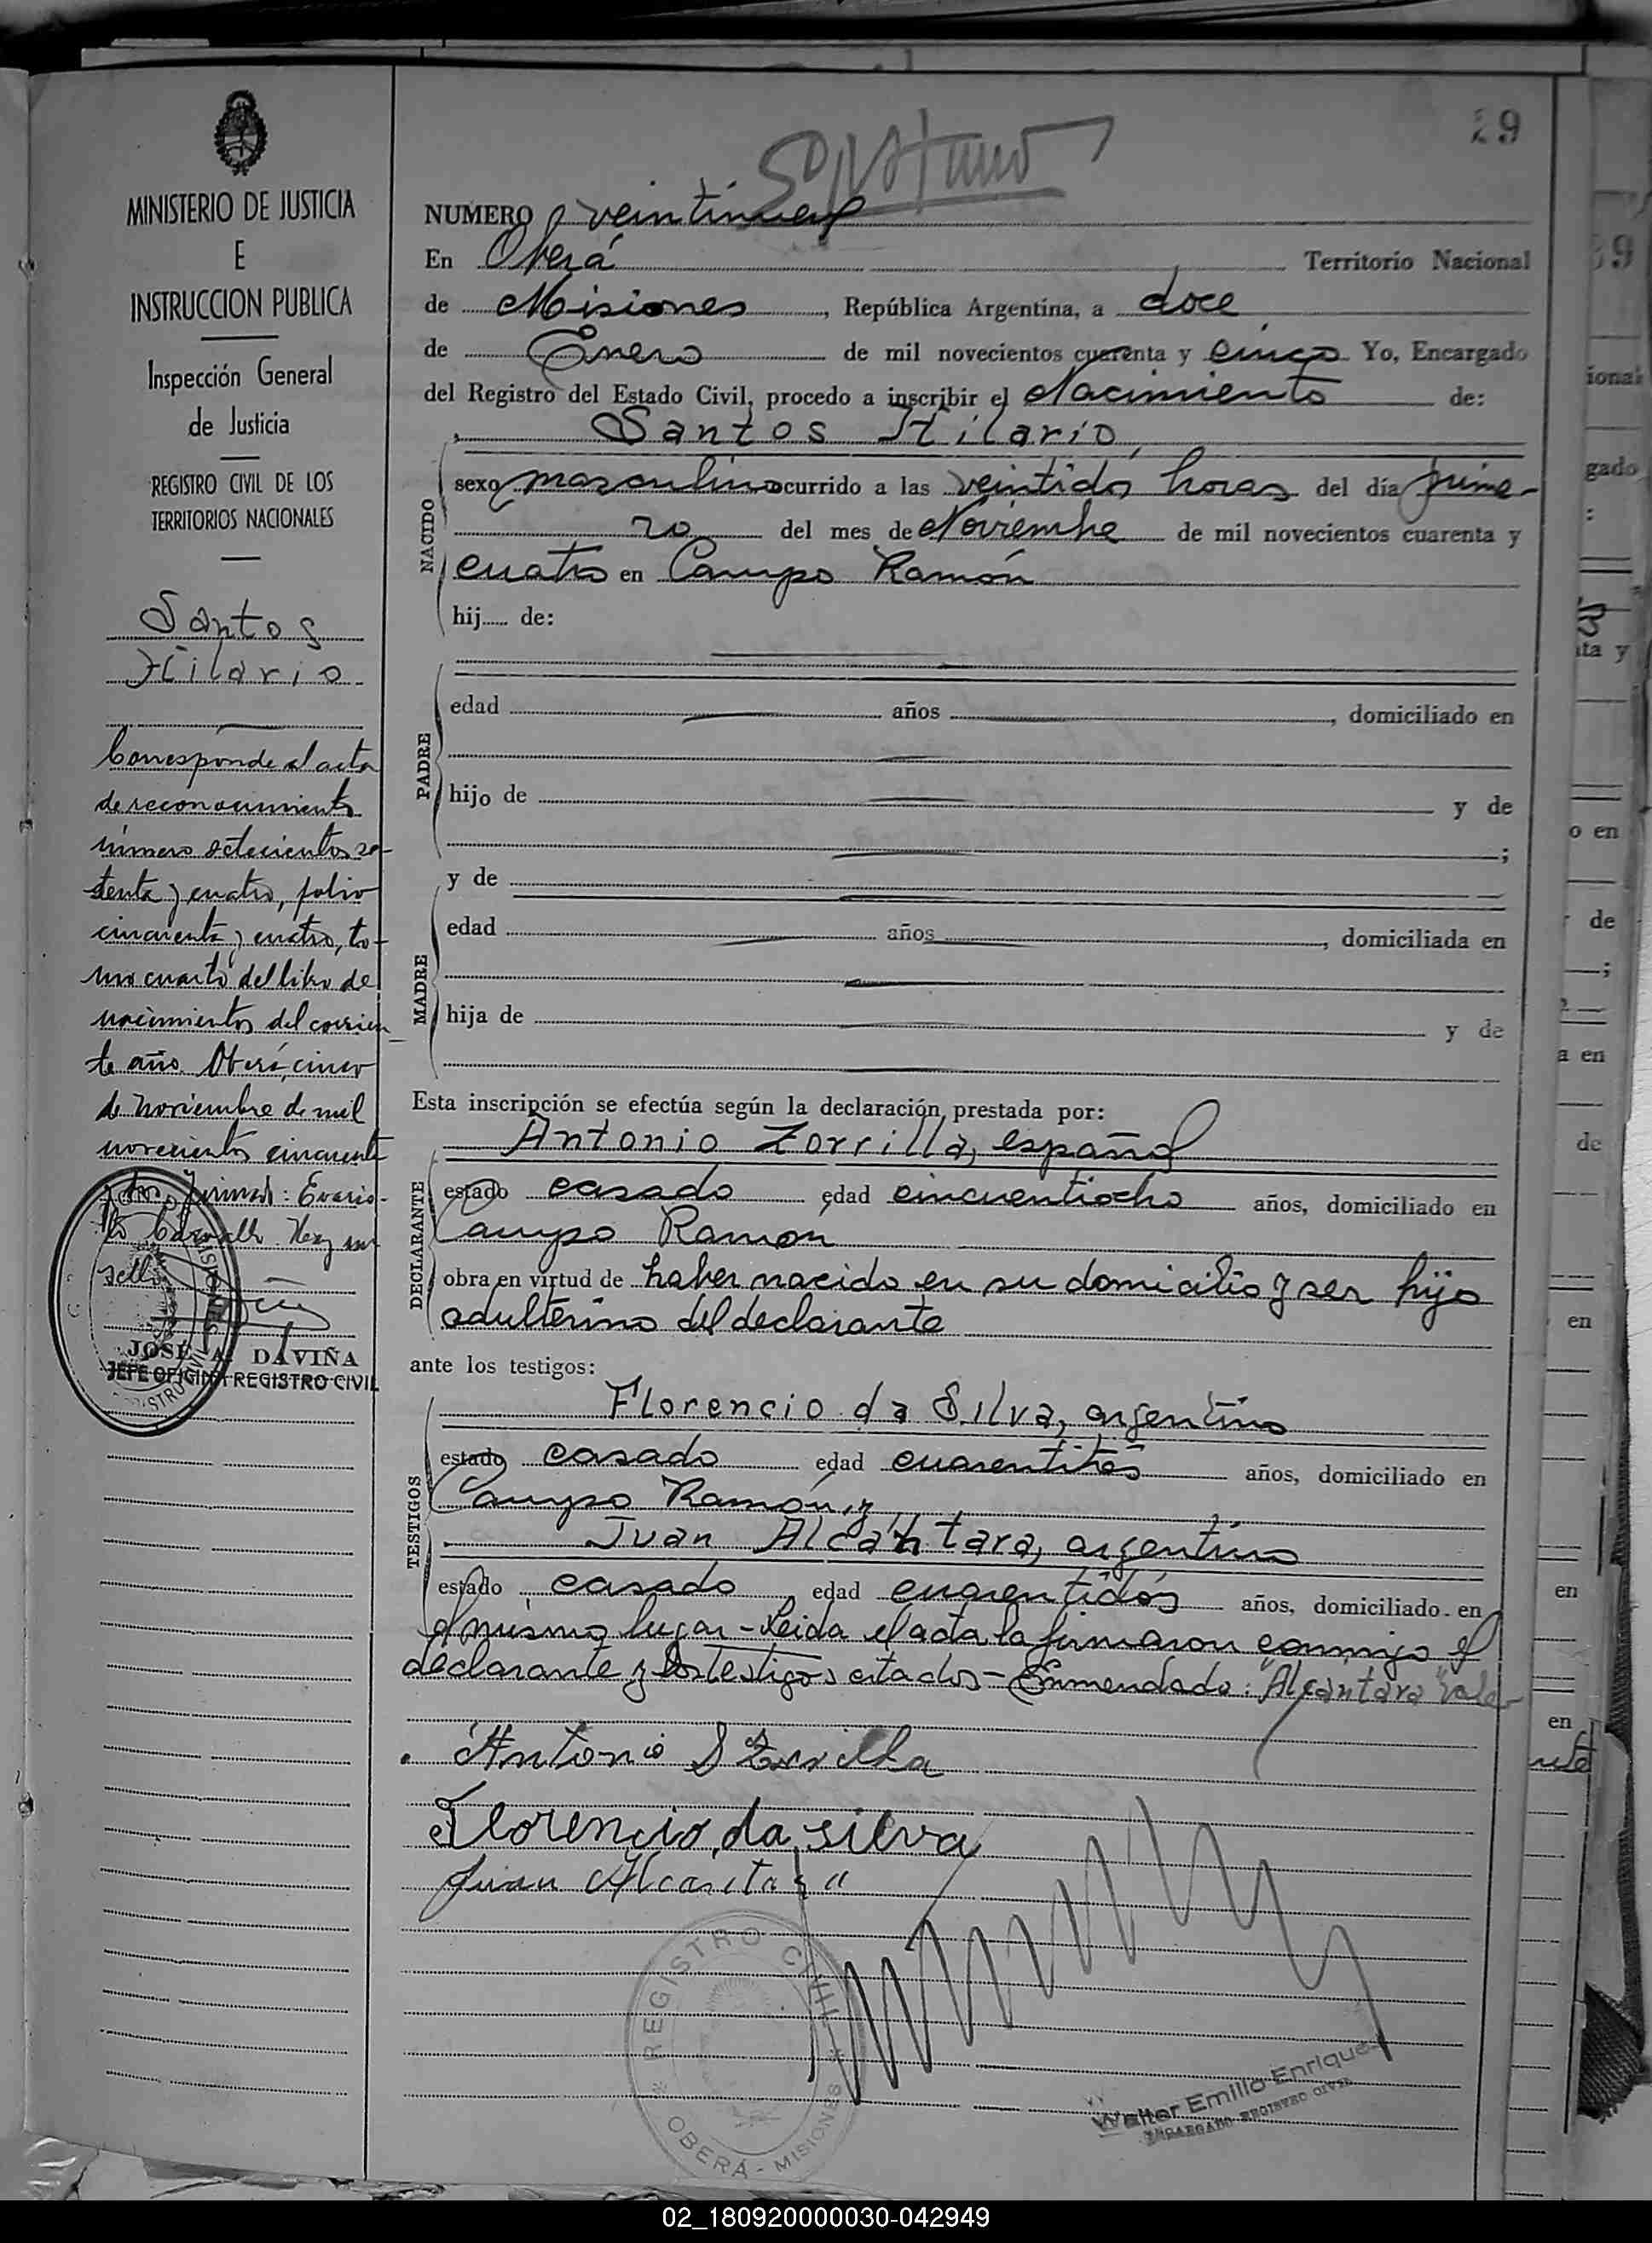 29
MINISTERIO DE JUSTICIA
E
INSTRUCCION PUBLICA
Inspección General
de Justicia
REGISTRO CIVIL DE LOS
TERRITORIOS NACIONALES
Santos
Hilario
Corresponde al acta
de reconocimiento
número setecientos se-
tenta y cuatro, folio
cincuenta y cuatro, to-
mo cuarto del libro de
nacimientos del corrien-
te año. Oberá, cinco
de Noviembre de mil
novecientos cincuenta
Firmado: Evaris-
to Hay un
sello
JOSE A. DAVIÑA
JEFE OFICINA REGISTRO CIVIL
NUMERO veintinueve
En Oberá Territorio Nacional
de Misiones, República Argentina, a doce
de Enero de mil novecientos cuarenta y cinco Yo, Encargado
del Registro del Estado Civil, procedo a inscribir el Nacimiento de:
Santos Hilario
NACIDO
sexo masculino ocurrido a las veintidós horas del día prime-
ro del mes de Noviembre de mil novecientos cuarenta y
cuatro en Campo Ramón
hij..... de:
PADRE
edad años , domiciliado en
hijo de y de
;
y de
MADRE
edad años , domiciliada en
hija de y de
Esta inscripción se efectúa según la declaración prestada por:
Antonio Zorrilla, español
DECLARANTE
estado casado edad cincuentiocho años, domiciliado en
Campo Ramón
obra en virtud de haber nacido en su domicilio y ser hijo
adulterino del declarante
ante los testigos:
TESTIGOS
Florencio da Silva, argentino
estado casado edad cuarentitrés años, domiciliado en
Campo Ramón, y
Juan Alcántara, argentino
estado casado edad cuarentidós años, domiciliado en
el mismo lugar - Leida el acta la firmaron conmigo el
declarante y los testigos citados - Enmendado: "Alcántara" Vale-
Antonio Zorrilla
Florencio da silva
Juan Alcanta
REGISTRO CIVIL
OBERÁ - MISIONES
Walter Emilio Enriquez
ENCARGADO REGISTRO CIVIL
02_180920000030-042949